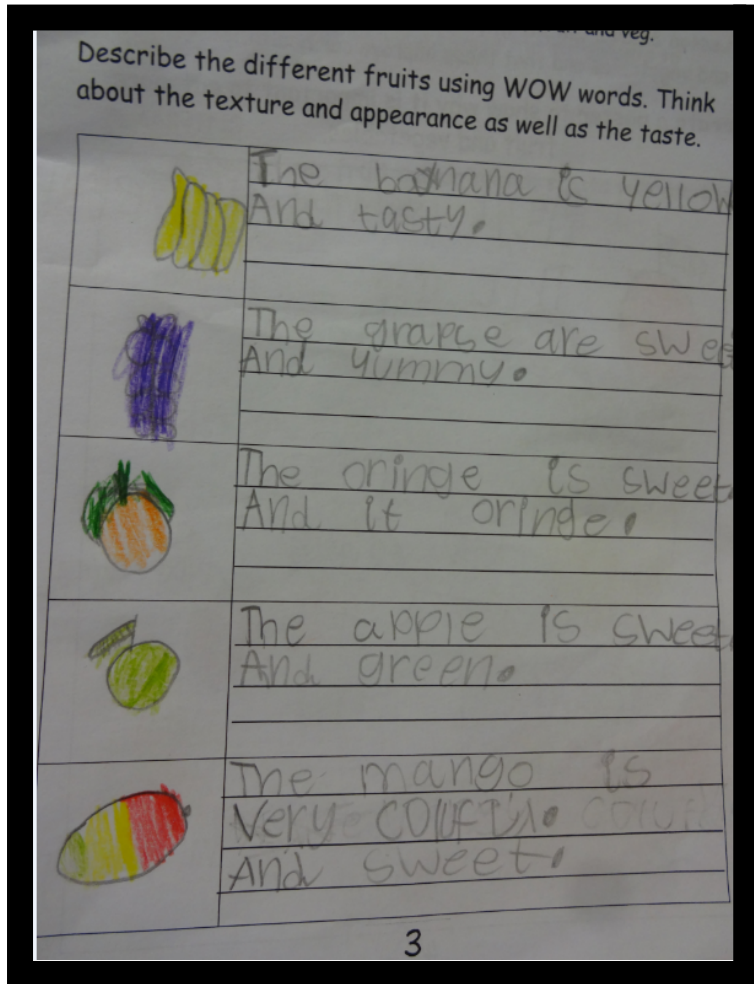 and veg.
Describe the different fruits using WOW words. Think
about the texture and appearance as well as the taste.
The banana is yellow
And tasty.
The grapse are swee
And yummy.
The oringe is sweet
And it oringe.
The apple is sweet
And green.
The mango is
Very
And sweet.
3